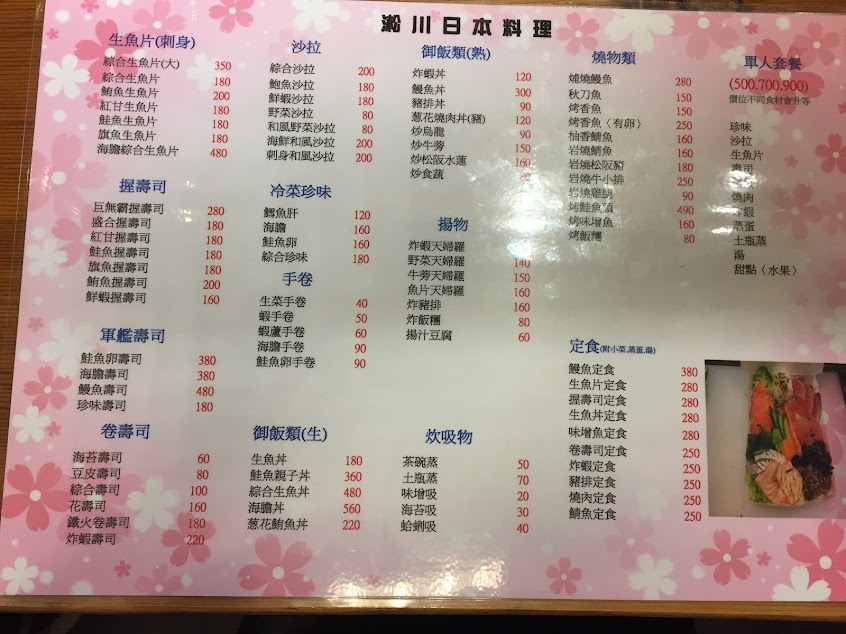 淞川日本料理
生魚片(刺身)
綜合生魚片(大) 350
綜合生魚片 180
鮪魚生魚片 200
紅甘生魚片 180
鮭魚生魚片 180
旗魚生魚片 180
海膽綜合生魚片 480
握壽司
巨無霸握壽司 280
盛合握壽司 180
紅甘握壽司 180
鮭魚握壽司 180
旗魚握壽司 180
鮪魚握壽司 200
鮮蝦握壽司 160
軍艦壽司
鮭魚卵壽司 380
海膽壽司 380
鰻魚壽司 480
珍味壽司 180
卷壽司
海苔壽司 60
豆皮壽司 80
綜合壽司 100
花壽司 160
鐵火卷壽司 180
炸蝦壽司 220
沙拉
綜合沙拉 200
鮑魚沙拉 180
鮮蝦沙拉 180
野菜沙拉 80
和風野菜沙拉 80
海鮮和風沙拉 200
刺身和風沙拉 200
冷菜珍味
鱈魚肝 120
海膽 160
鮭魚卵 160
綜合珍味 180
手卷
生菜手卷 40
蝦手卷 50
蝦蘆手卷 60
海膽手卷 90
鮭魚卵手卷 90
御飯類(生)
生魚丼 180
鮭魚親子丼 360
綜合生魚丼 480
海膽丼 560
葱花鮪魚丼 220
御飯類(熟)
炸蝦丼 120
鰻魚丼 300
豬排丼 90
葱花燒肉丼(豬) 120
炒烏龍 90
炒牛蒡
炒松阪水蓮 160
炒食蔬
揚物
炸蝦天婦羅
野菜天婦羅 140
牛蒡天婦羅 150
魚片天婦羅 160
炸豬排 160
炸飯糰 80
揚汁豆腐 60
炊吸物
茶碗蒸 50
土瓶蒸 70
味增吸 20
海苔吸 30
蛤蜊吸 40
燒物類
埔燒鰻魚 280
秋刀魚 150
烤香魚 150
烤香魚〈有卵〉 250
柚香鯖魚 160
岩燒鯖魚 160
岩燒松阪豬 150
岩燒牛小排 250
岩燒雞腿 90
烤鮭魚頭 490
烤味增魚 160
烤飯糰 80
定食(附小菜.蒸蛋.湯)
鰻魚定食 380
生魚片定食 280
握壽司定食 280
生魚丼定食 280
味增魚定食 280
卷壽司定食 250
炸蝦定食 250
豬排定食 250
燒肉定食 250
鯖魚定食 250
單人套餐
(500.700.900)
價位不同食材會升等
珍味
沙拉
生魚片
壽司
燒肉
炸蝦
蒸蛋
土瓶蒸
湯
甜點〈水果〉